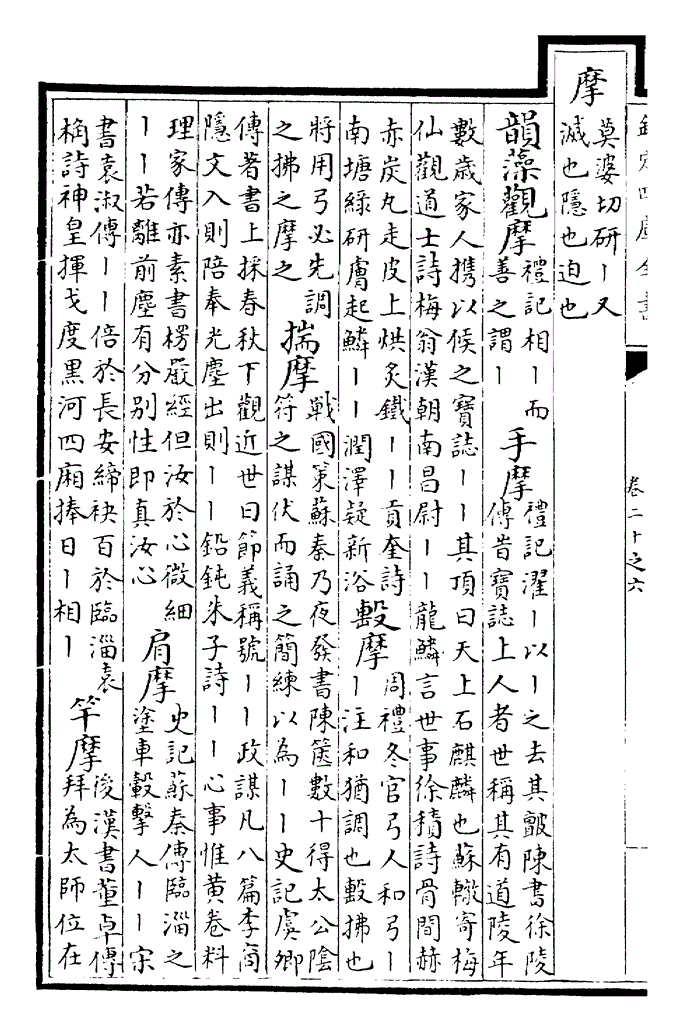 欽定四庫全書
卷二十之六
摩
莫婆切研丨又
滅也隱也迫也
韻藻觀摩
禮記相丨而
善之謂丨
手摩
禮記濯丨以丨之去其皽陳書徐陵
傳昔寶誌上人者世稱其有道陵年
數歲家人攜以候之寶誌丨丨其頂曰天上石麒麟也蘇轍寄梅
仙觀道士詩梅翁漢朝南昌尉丨丨龍鱗言世事徐積詩骨間赫
赤炭丸走皮上烘炙鐵丨丨貢奎詩
南塘綠研膚起鱗丨丨潤澤疑新浴
毄摩
周禮冬官弓人和弓丨
丨注和猶調也毄拂也
將用弓必先調
之拂之摩之
揣摩
戰國策蘇秦乃夜發書陳篋數十得太公陰
符之謀伏而誦之簡練以為丨丨史記虞卿
傳著書上採春秋下觀近世曰節義稱號丨丨政謀凡八篇李商
隱文入則陪奉光塵出則丨丨鉛鈍朱子詩丨丨心事惟黃卷料
理家傳亦素書楞嚴經但汝於心微細
丨丨若離前塵有分別性即真汝心
肩摩
史記蘇秦傳臨淄之
塗車轂擊人丨丨宋
書袁淑傳丨丨倍於長安締袂百於臨淄袁
桷詩神皇揮戈度黑河四廂捧日丨相丨
竿摩
後漢書董卓傳
拜為太師位在